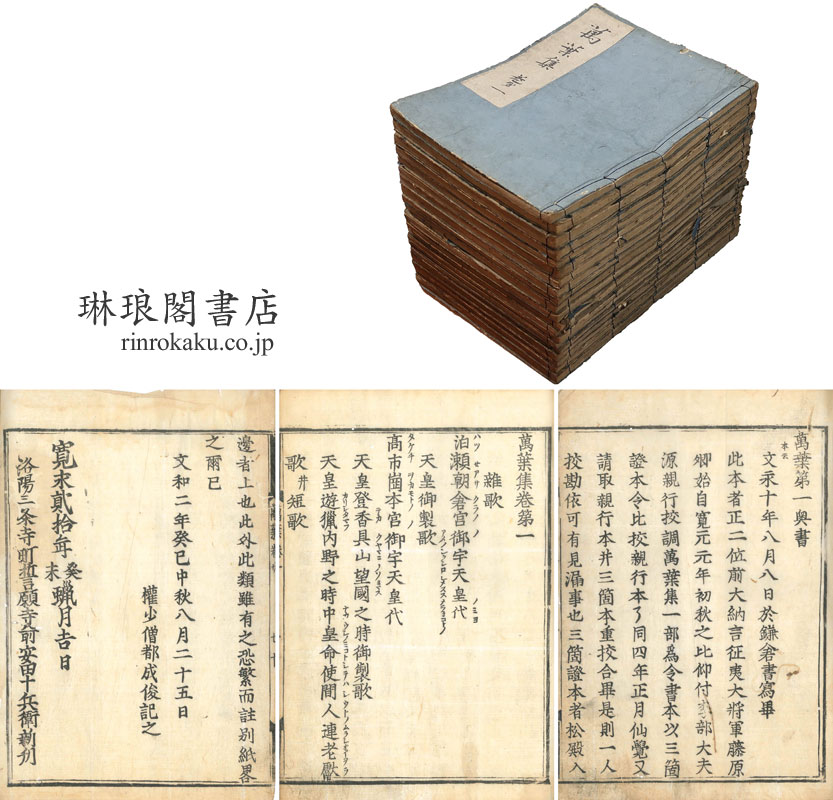 萬葉集 巻一
琳琅閣書店
rinrokaku.co.jp
萬葉第一奥書
本云
文永十年八月八日於鎌倉書寫畢
此本者正二位前大納言征夷大將軍藤原
卿始自寛元元年初秋之比仰付李部大夫
源親行挍調萬葉集一部爲令書本以三箇
證本令比挍親行本了同四年正月仙覺又
請取親行本并三箇本重挍合畢是則一人
挍勘依可有見漏事也三箇證本者松殿入
萬葉集巻第一
雜歌
泊瀬朝倉宮御宇天皇代
天皇御製歌
高市崗本宮御宇天皇代
天皇登香具山望國之時御製歌
天皇遊獵内野之時中皇命使間人連老獻
歌并短歌
邊者上也此外此類雖有之恐繁而註別紙畧
之爾已
文和二年癸巳中秋八月二十五日
權少僧都成俊記之
寛永貳拾年癸未臘月吉日
洛陽三条寺町誓願寺前安田十兵衛新刊